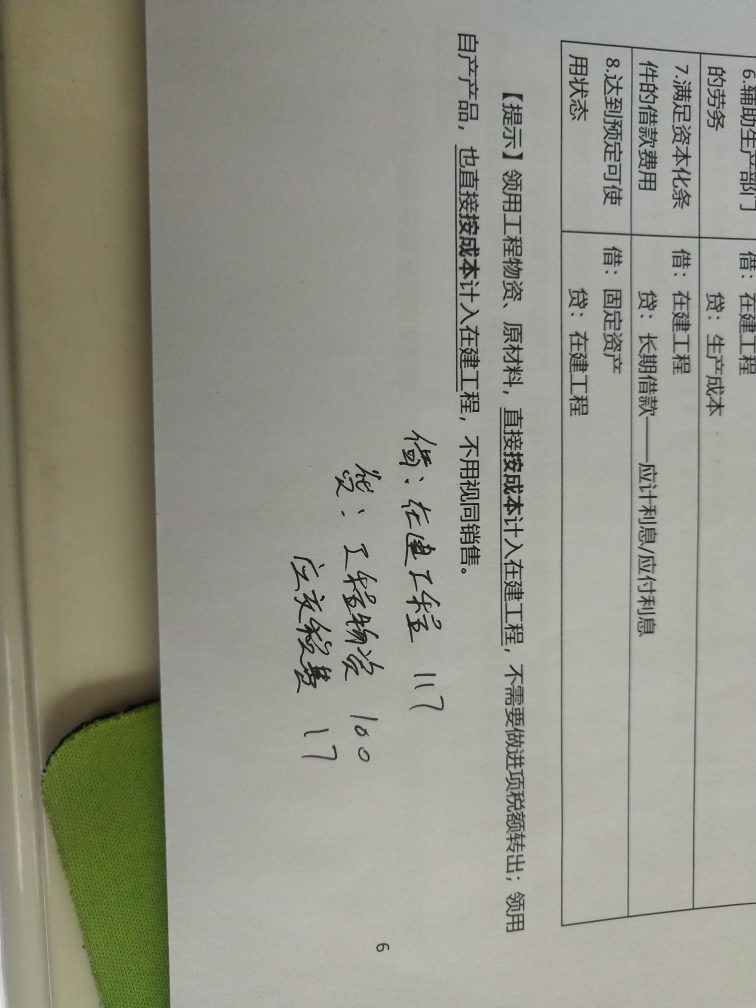 6.辅助生产部门
的劳务
借：在建工程
贷：生产成本
7.满足资本化条
件的借款费用
借：在建工程
贷：长期借款——应计利息/应付利息
8.达到预定可使
用状态
借：固定资产
贷：在建工程
【提示】领用工程物资、原材料，直接按成本计入在建工程，不需要做进项税额转出；领用
自产产品，也直接按成本计入在建工程，不用视同销售。
借：在建工程 117
贷：工程物资 100
应交税费 17
6